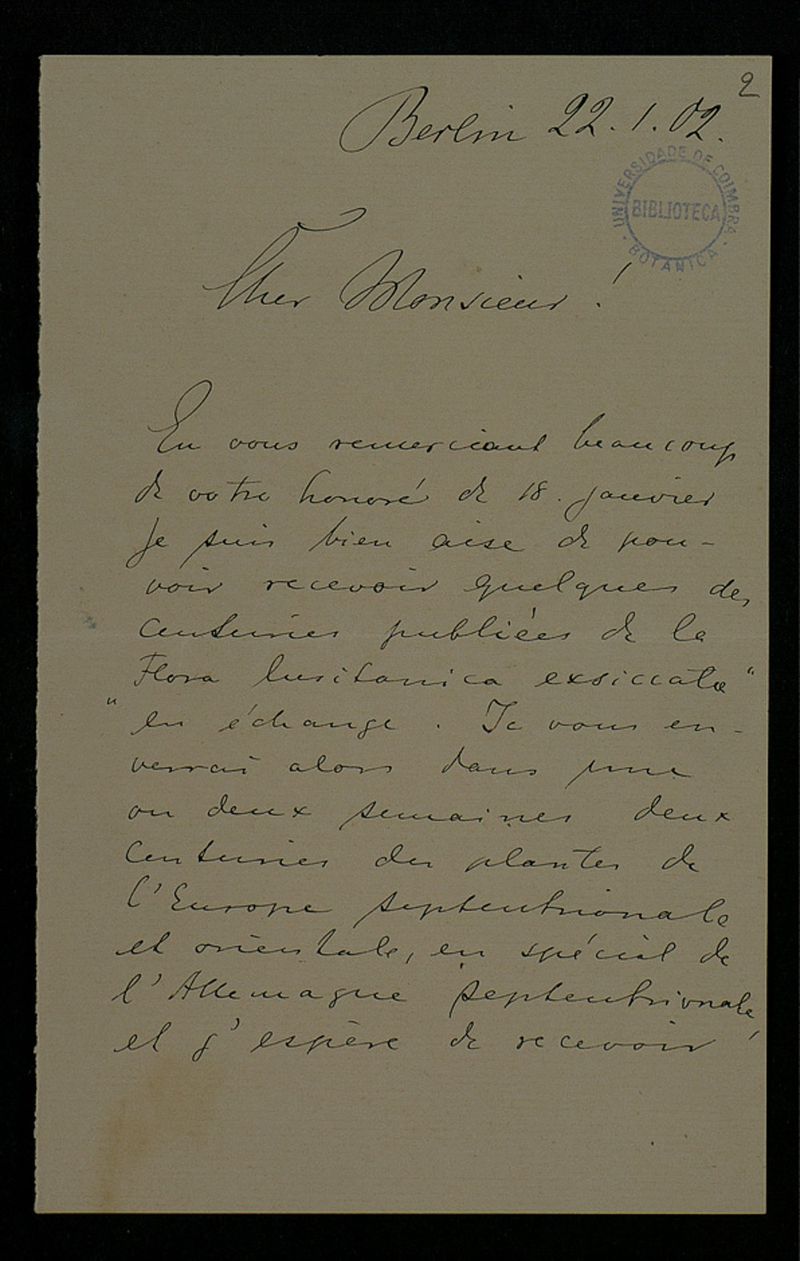 2
Berlin 22.1.02.
UNIVERSIDADE DE COIMBRA
BIBLIOTECA
BOTANICA
Cher Monsieur!
En vous remerciant beaucoup
de votre honoré de 18. janvier
je suis bien aise de pou-
voir recevoir quelques des
centuries publiées de la
Flora lusitanica exsiccata"
" en échange. Je vous en-
verrai alors dans une
ou deux semaines deux
Centuries des plantes de
l'Europe septentrionale
et orientale, en spécial de
l'Allemagne septentrionale,
et j'espère de recevoir